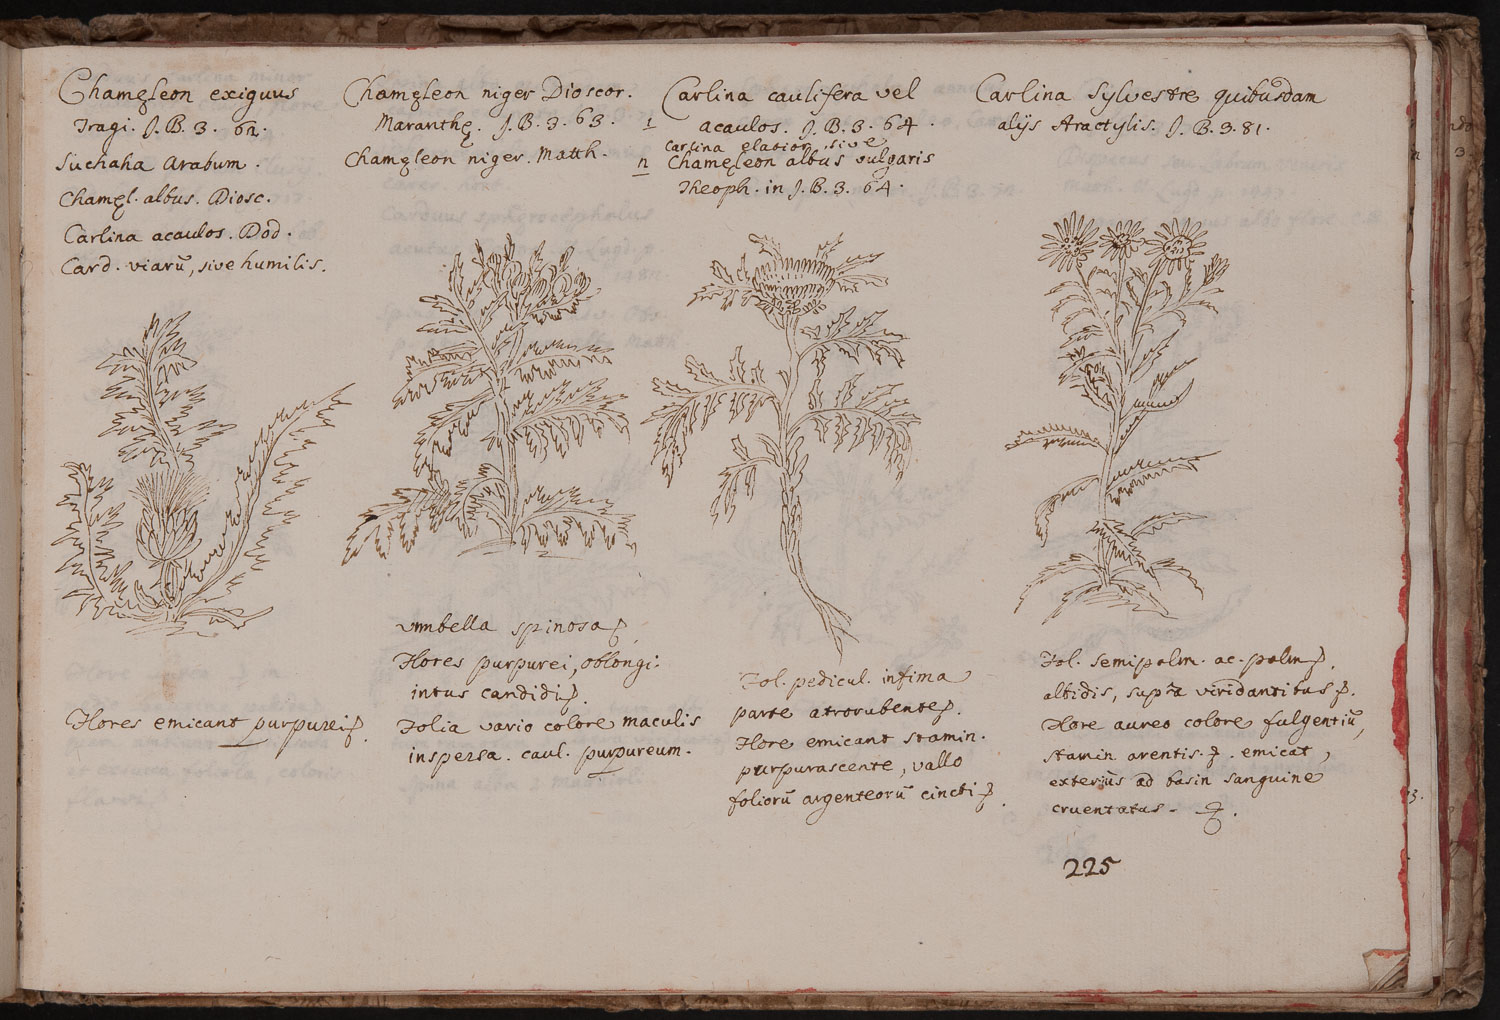 Chamęleon exiguus
Tragi. J. B. 3. 62.
Suchaha Arabum.
Chamęl. albus. Diosc.
Carlina acaulos. Dod.
Card. viarū, sive humilis.
Flores emicant purpurei
Chamęleon niger Dioscor.
Maranthę. J. B. 3. 63.
Chamęleon niger. Matth.
umbella spinosa
Flores purpurei, oblongi
intus candidi
Folia vario colore maculis
inspersa. caul. purpureum.
1 Carlina caulifera vel
acaulos. J. B. 3. 64.
Carlina elatior, sive
2 Chamęleon albus vulgaris
Theoph. in J. B. 3. 64.
Fol. pedicul. infima
parte atrorubente
Flore emicant stamin.
purpurascente, vallo
foliorū argenteorū cincti
Carlina Sylvestre quibusdam
alijs Atractylis. J. B. 3. 81.
Fol. semipalm. ac palm
albidis, supra viridantibus
Flore aureo colore fulgentiū,
stamin arentis. emicat,
exteriūs ad basin sanguine
cruentatus.
225